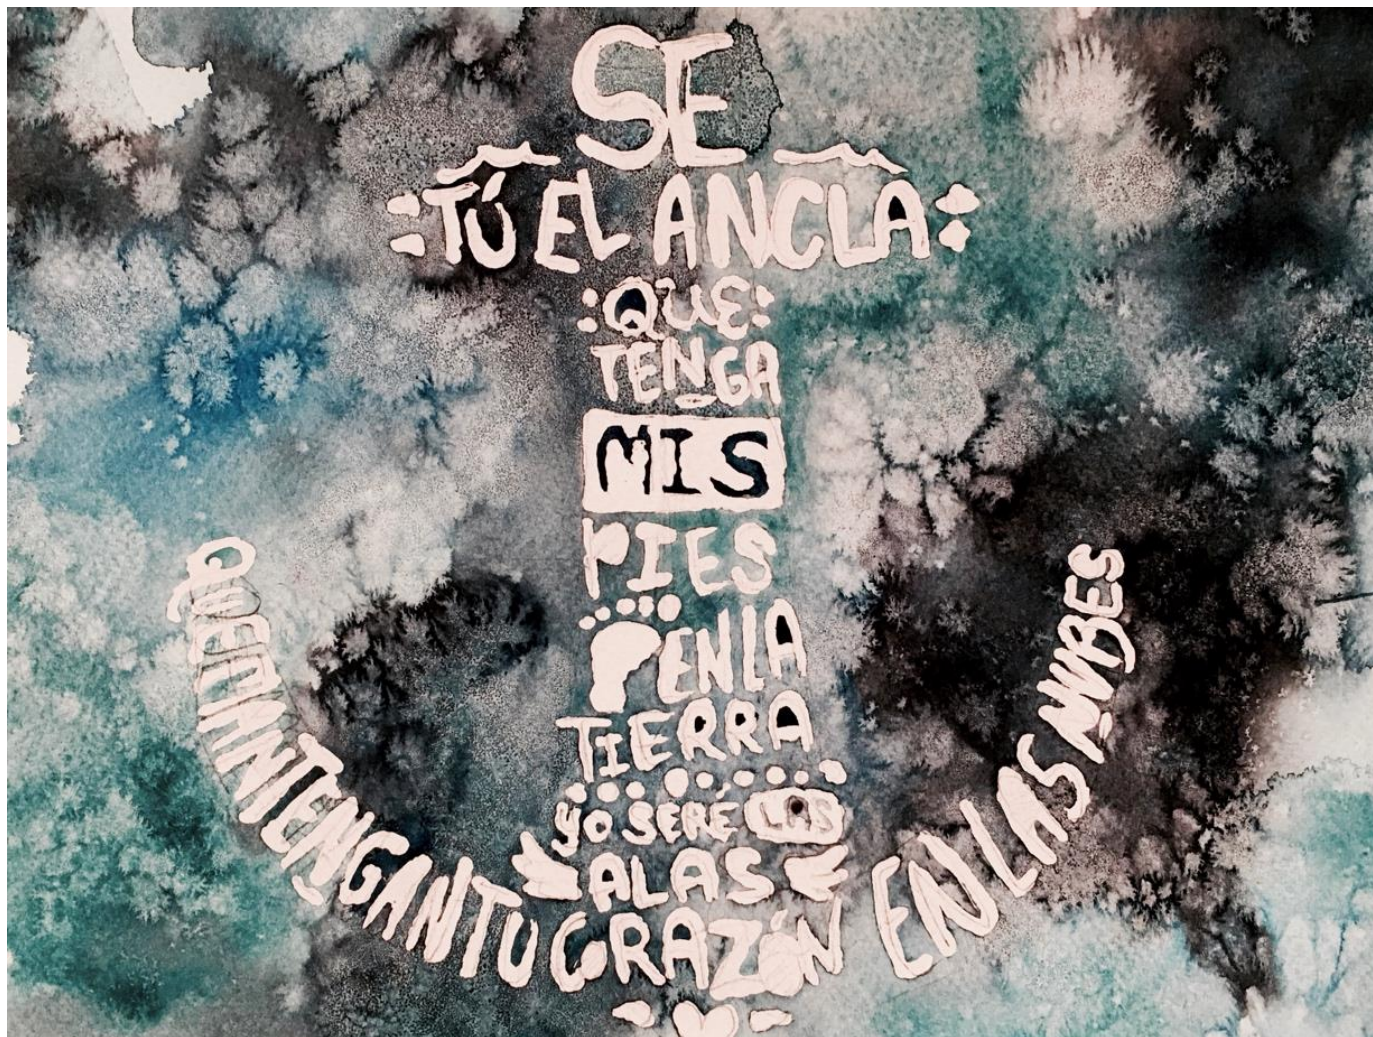 SE
TÚ EL ANCLA
QUE
TENGA
MIS
PIES
EN LA
TIERRA
YO SERÉ LAS
ALAS
QUE MANTENGAN TU CORAZÓN EN LAS NUBES